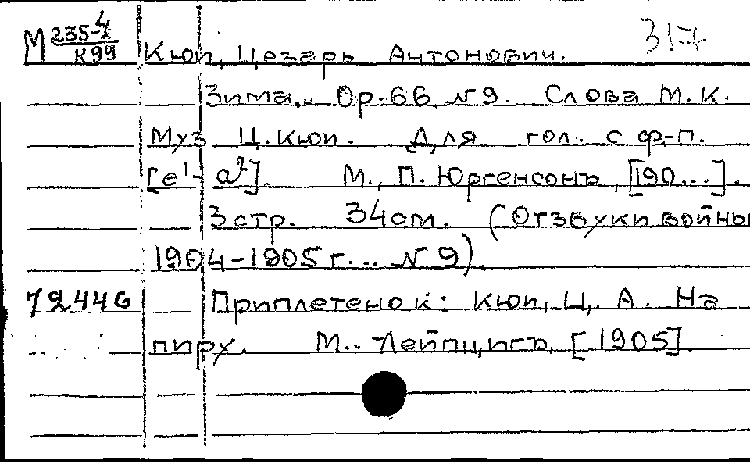 М 235-4/К99 Кюи, Цезарь Антонович. 317
Зима.. Ор. 66 №9. Слова М.К.
Муз Ц. Кюи. Для гол. с ф-п.
[e¹- a²]. М., П. Юргенсонъ, [190...].
3 стр. 34 см. (Отзвуки войны
1904-1905 г... №9)
72446 Приплетено к: Кюи, Ц. А. На
пиру. М.. Лейпцигъ, [1905]